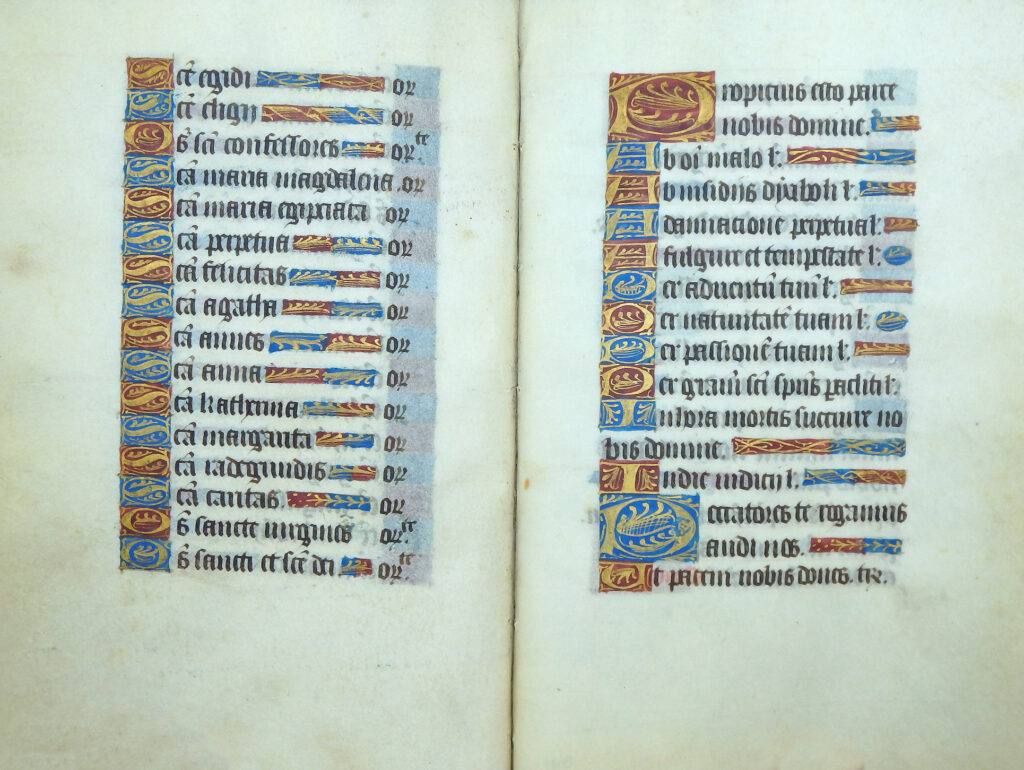 Scē egidi or
Scē eligii or
Oēs sči confessores or.te
Sčā maria magdalena .or
Sčā maria egipciaca or
Sčā perpetua or
Sčā felicitas or
Sčā agatha or
Sčā annes or
Sčā anna or
Sčā katherina or
Sčā margarita or
Sčā radegundis or
Sčā caritas. or
Oēs sancte virgines or.te
Oēs sancti et scē dei or.te
Propicius esto parce
nobis domine.
Ab oī malo l'.
Ab insidiis dyaboli l'.
A damnacione perpetua l'.
A fulgure et tempestate l':
Per aduentū tuū l'.
Per natiuitatē tuam l'.
Per passionē tuam l'.
Per graciā sči spūs paracliti l'.
In hora mortis succurre no
bis domine.
In die iudicii l'.
Peccatores te rogamus
audi nos.
Ut pacem nobis dones. te.